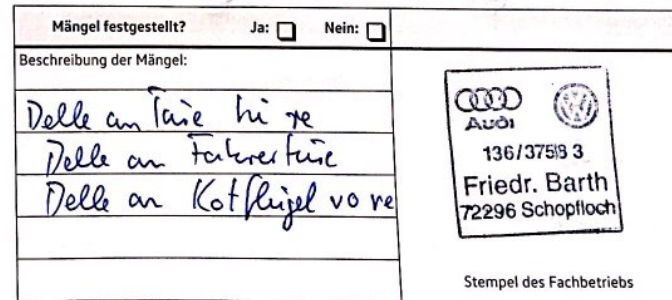 Mängel festgestellt? Ja: Nein:
Beschreibung der Mängel:
Delle an Türe hi re
Delle an Fahrertüre
Delle an Kotflügel vo re
Audi
136/37583
Friedr. Barth
72296 Schopfloch
Stempel des Fachbetriebs